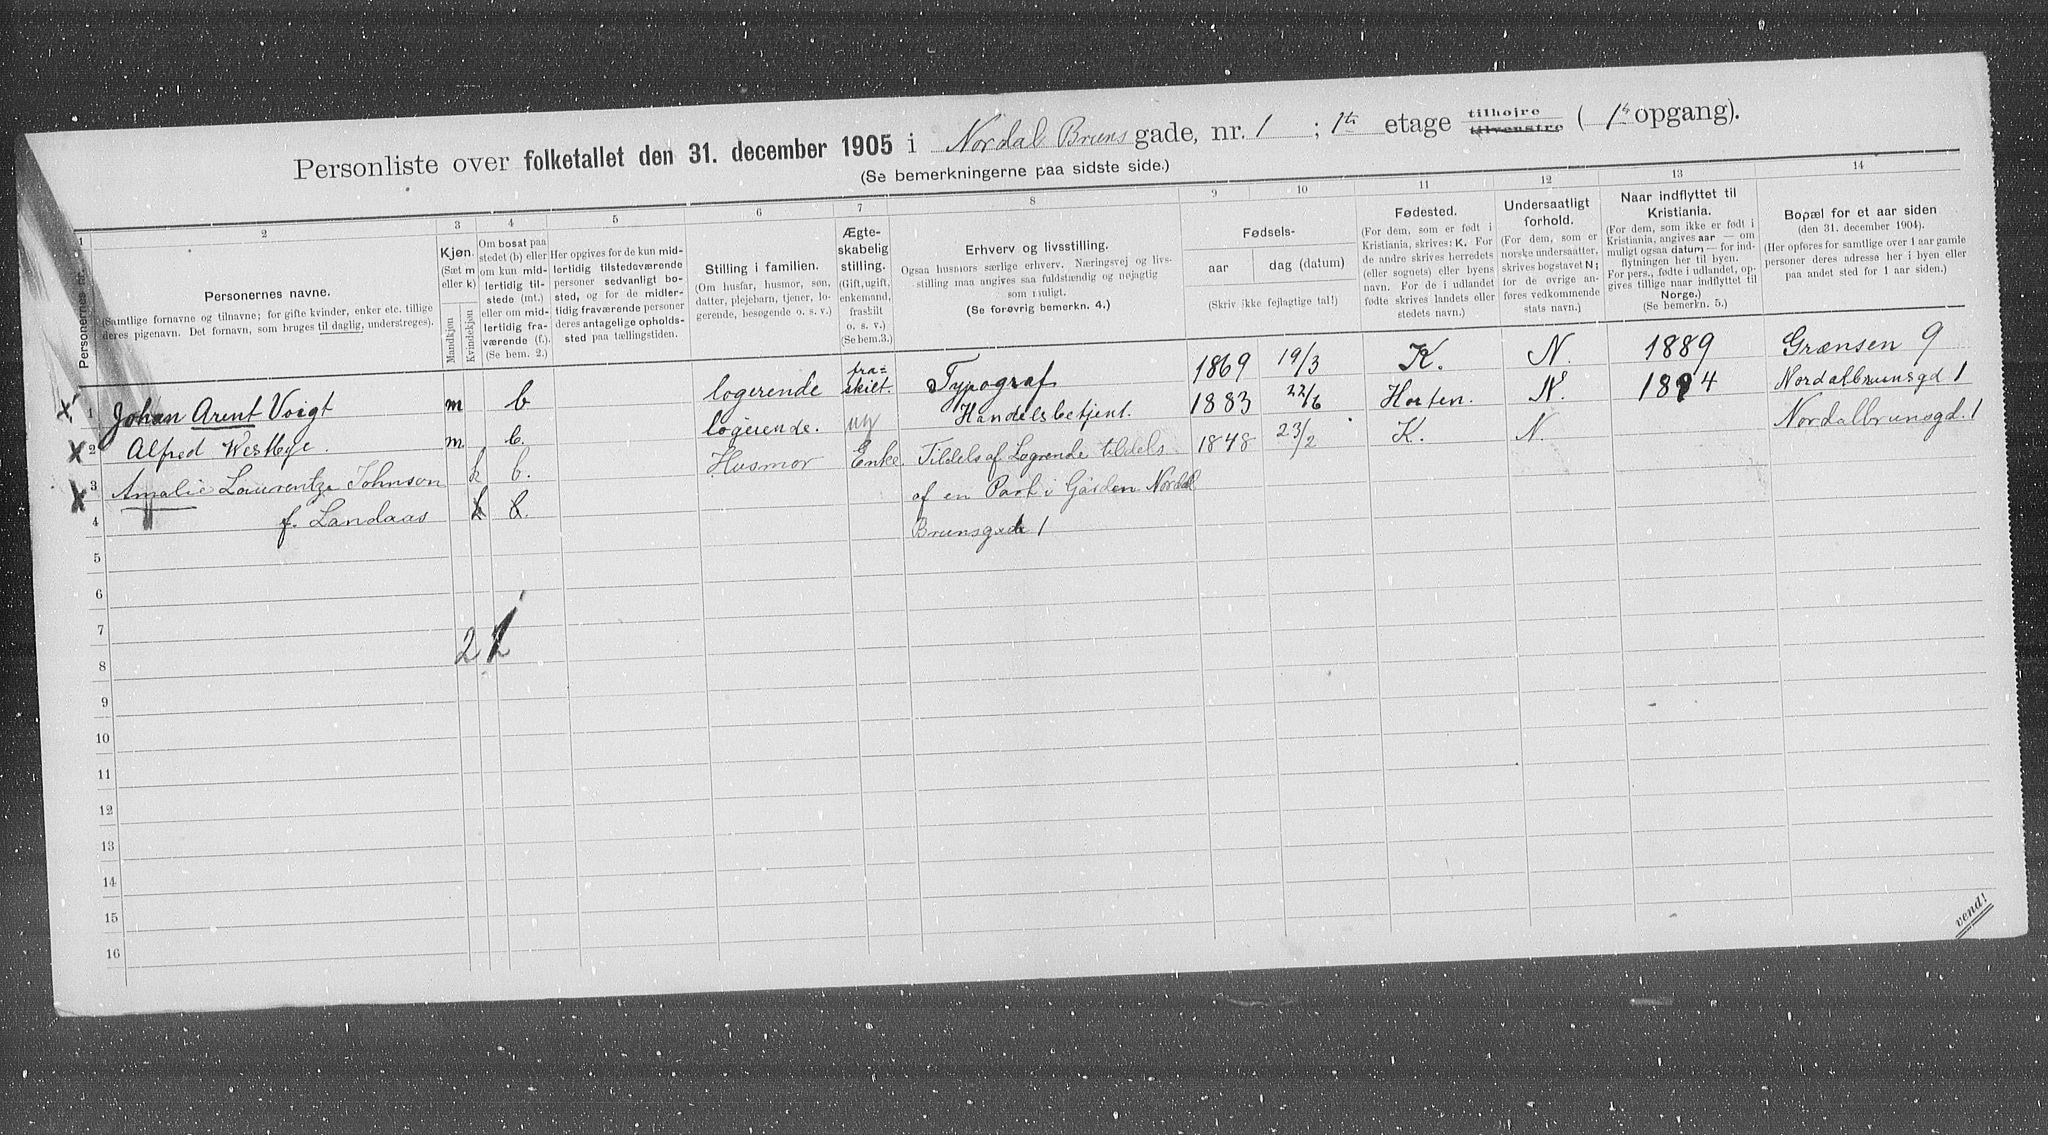 Personliste over folketallet den 31. december 1905 i Nordal Bruns gade, nr. 1 ; 1ste etage tilhøjre tilvenstre ( 1ste opgang).
(Se bemerkningerne paa sidste side.)
1 2 3 4 5 6 7 8 9 10 11 12 13 14
Personernes nr.
Personernes navne.
(Samtlige fornavne og tilnavne; for gifte kvinder, enker etc. tillige
deres pigenavn. Det fornavn, som bruges til daglig, understreges).
Kjøn.
(Sæt m
eller k)
Mandkjøn
Kvindekjøn
Om bosat paa
stedet (b) eller
om kun mid-
lertidig til-
stede (mt.)
eller om mid-
lertidig fra-
værende (f.).
(Se bem. 2.)
Her opgives for de kun mid-
lertidig tilstedeværende
personer sedvanligt bo-
sted, og for de midler-
tidig fraværende personer
deres antagelige opholds-
sted paa tællingstiden.
Stilling i familien.
(Om husfar, husmor, søn,
datter, plejebarn, tjener, lo-
gerende, besøgende o. s. v.)
Ægte-
skabelig
stilling.
(Gift, ugift,
enkemand,
fraskilt
o. s. v.)
(Se bem.3.)
Erhverv og livsstilling.
Ogsaa husmors særlige erhverv. Næringsvej og livs-
stilling maa angives saa fuldstændig og nøjagtig
som muligt.
(Se forøvrig bemerkn. 4.)
Fødsels-
aar dag (datum)
(Skriv ikke fejlagtige tal!)
Fødested.
(For dem, som er født i
Kristiania, skrives: K. For
de andre skrives herredets
(eller sognets) eller byens
navn. For de i udlandet
fødte skrives landets eller
stedets navn.)
Undersaatligt
forhold.
(For dem, som er
norske undersaatter,
skrives bogstavet N;
for de øvrige an-
føres vedkommende
stats navn.)
Naar indflyttet til
Kristiania.
(For dem, som ikke er født i
Kristiania, angives aar — om
muligt ogsaa datum — for ind-
flytningen her til byen.
For pers., født i udlandet, op-
gives tillige naar indflyttet til
Norge.)
(Se bemerkn. 5.)
Bopæl for et aar siden
(den 31. december 1904).
(Her opføres for samtlige over 1 aar gamle
personer deres adresse her i byen eller
paa andet sted for 1 aar siden.)
x 1 Johan Arent Voigt m b logerende fra=
skilt. Typograf 1869 19/3 K. N. 1889 Grænsen 9
x 2 Alfred Westbye. m b. logerende. ug Handelsbetjent. 1883 22/6 Horten. N. 1894 Nordalbrunsgd 1
x 3 Amalie Laurentze Johnson k b. Husmor Enke. Tildels af Logrende tildels 1848 23/2 K. N. Nordalbrunsgd. 1
4 f. Landaas k b. af en Part i Gården Nordal
Brunsgade 1
5
6
7
2
8
9
10
11
12
13
14
15
16
vend!